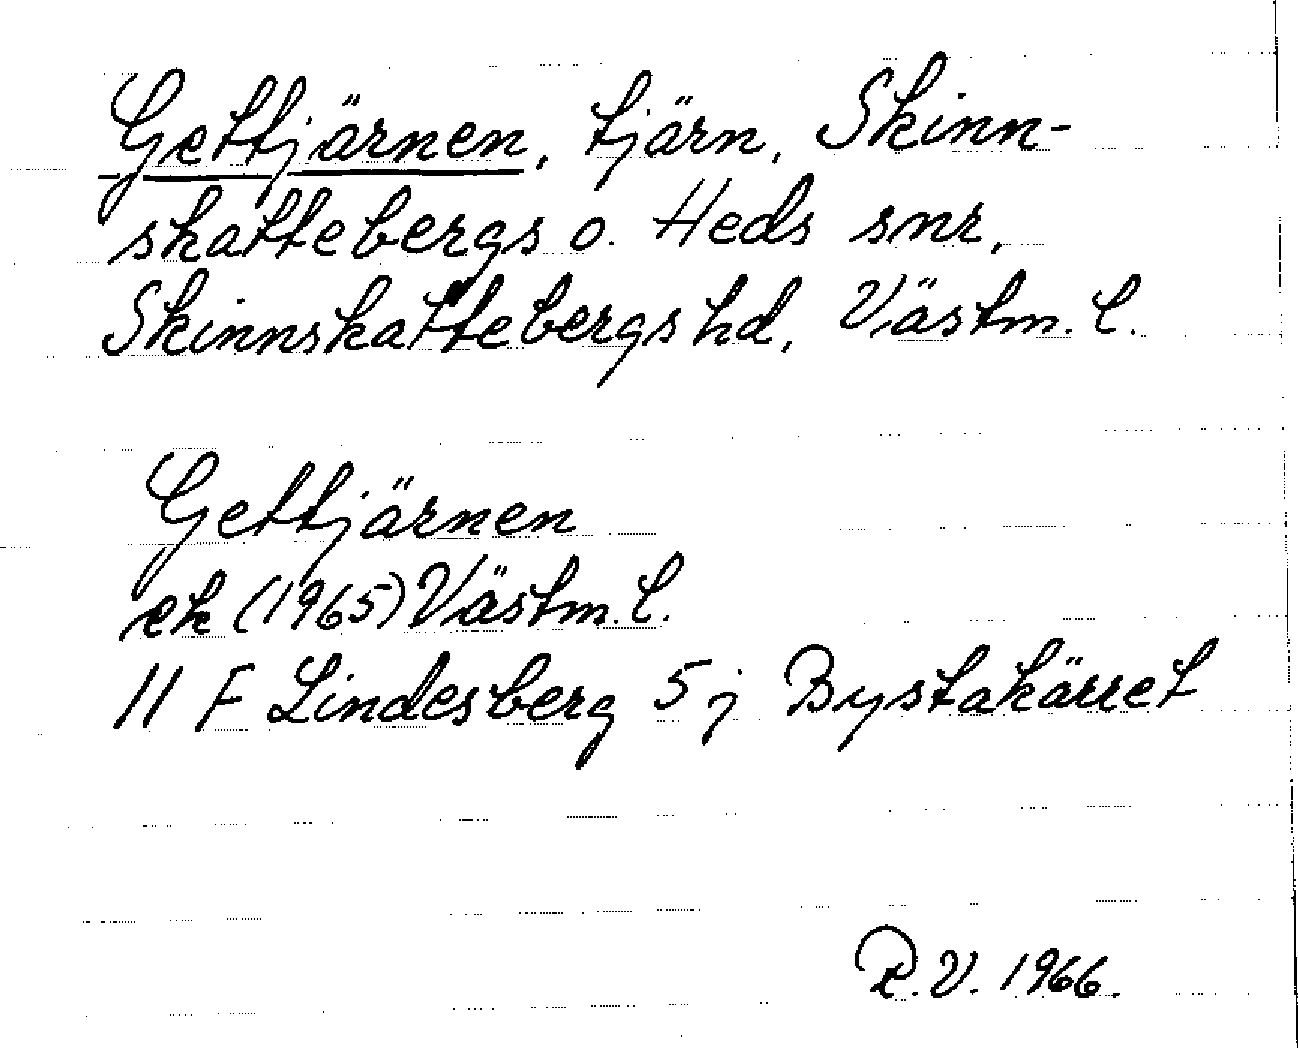 Gettjärnen, tjärn, Skinn-
skattebergs o. Heds snr,
Skinnskattebergs hd, Västm. l.
Gettjärnen
ek (1965) Västm. l.
11 F Lindesberg 5 j Bystakärret
R.V. 1966.